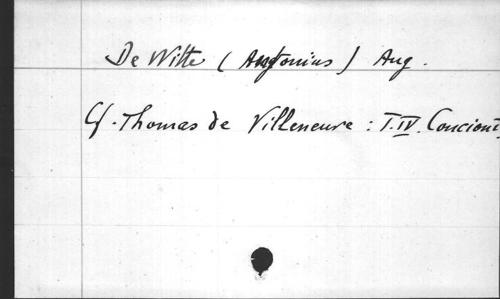 De Witte (Antonius) Aug.
Cf. Thomas de Villeneuve : T.IV. Conciont